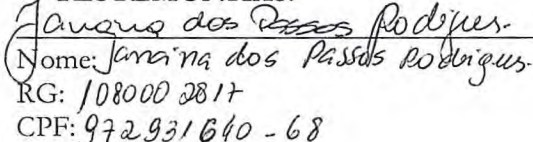 Janaina dos Passos Rodrigues.
Nome: Janaina dos Passos Rodrigues.
RG: 1080002817
CPF: 972931640-68